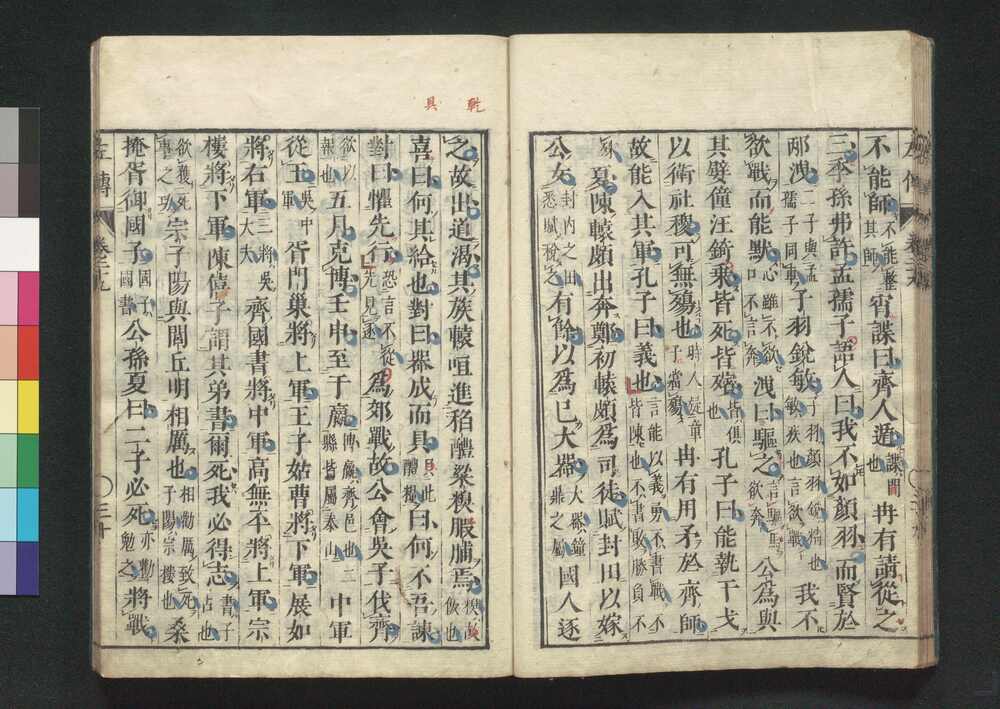 不能師不能整其師宵諜曰齊人遁諜間也冉有請從之
三季孫弗許孟孺子語人曰我不如顏羽而賢於
邴洩二子與孟孺子同車子羽銳敏子羽顏羽銳精也敏疾也言欲戰我不
欲戰而能默心雖不欲口不言奔洩曰驅之言驅馬欲奔公爲與
其嬖僮汪錡乘皆死皆殯皆俱也孔子曰能執干戈
以衛社稷可無殤也時人疑童子當殤冉有用矛於齊師
故能入其軍孔子曰義也言能以義勇不書戰不皆陳也不書敗勝負不
夏陳轅頗出奔鄭初轅頗爲司徒賦封田以嫁
公女封內之田悉賦稅之有餘以爲己大器大器鐘鼎之屬國人逐
之故出道渴其族轅咺進稻醴粱糗腶脯焉
喜曰何其給也對曰器成而具具此醴糗曰何不吾諫
對曰懼先行恐言不從先見逐爲郊戰故公會吳子伐齊
欲以報也五月克博壬申至于嬴博嬴齊邑也二縣皆屬泰山中軍
從王吳中軍胥門巢將上軍王子姑曹將下軍展如
將右軍三將吳大夫齊國書將中軍高無㔻將上軍宗
樓將下軍陳僖子謂其弟書爾死我必得志書子占也
欲獲死事之功宗子陽與閭丘明相厲也相勸厲致死子陽宗樓也桑
掩胥御國子國子國書公孫夏曰二子必死亦勸勉之將戰
左傳
卷二十九
三十
乾
具